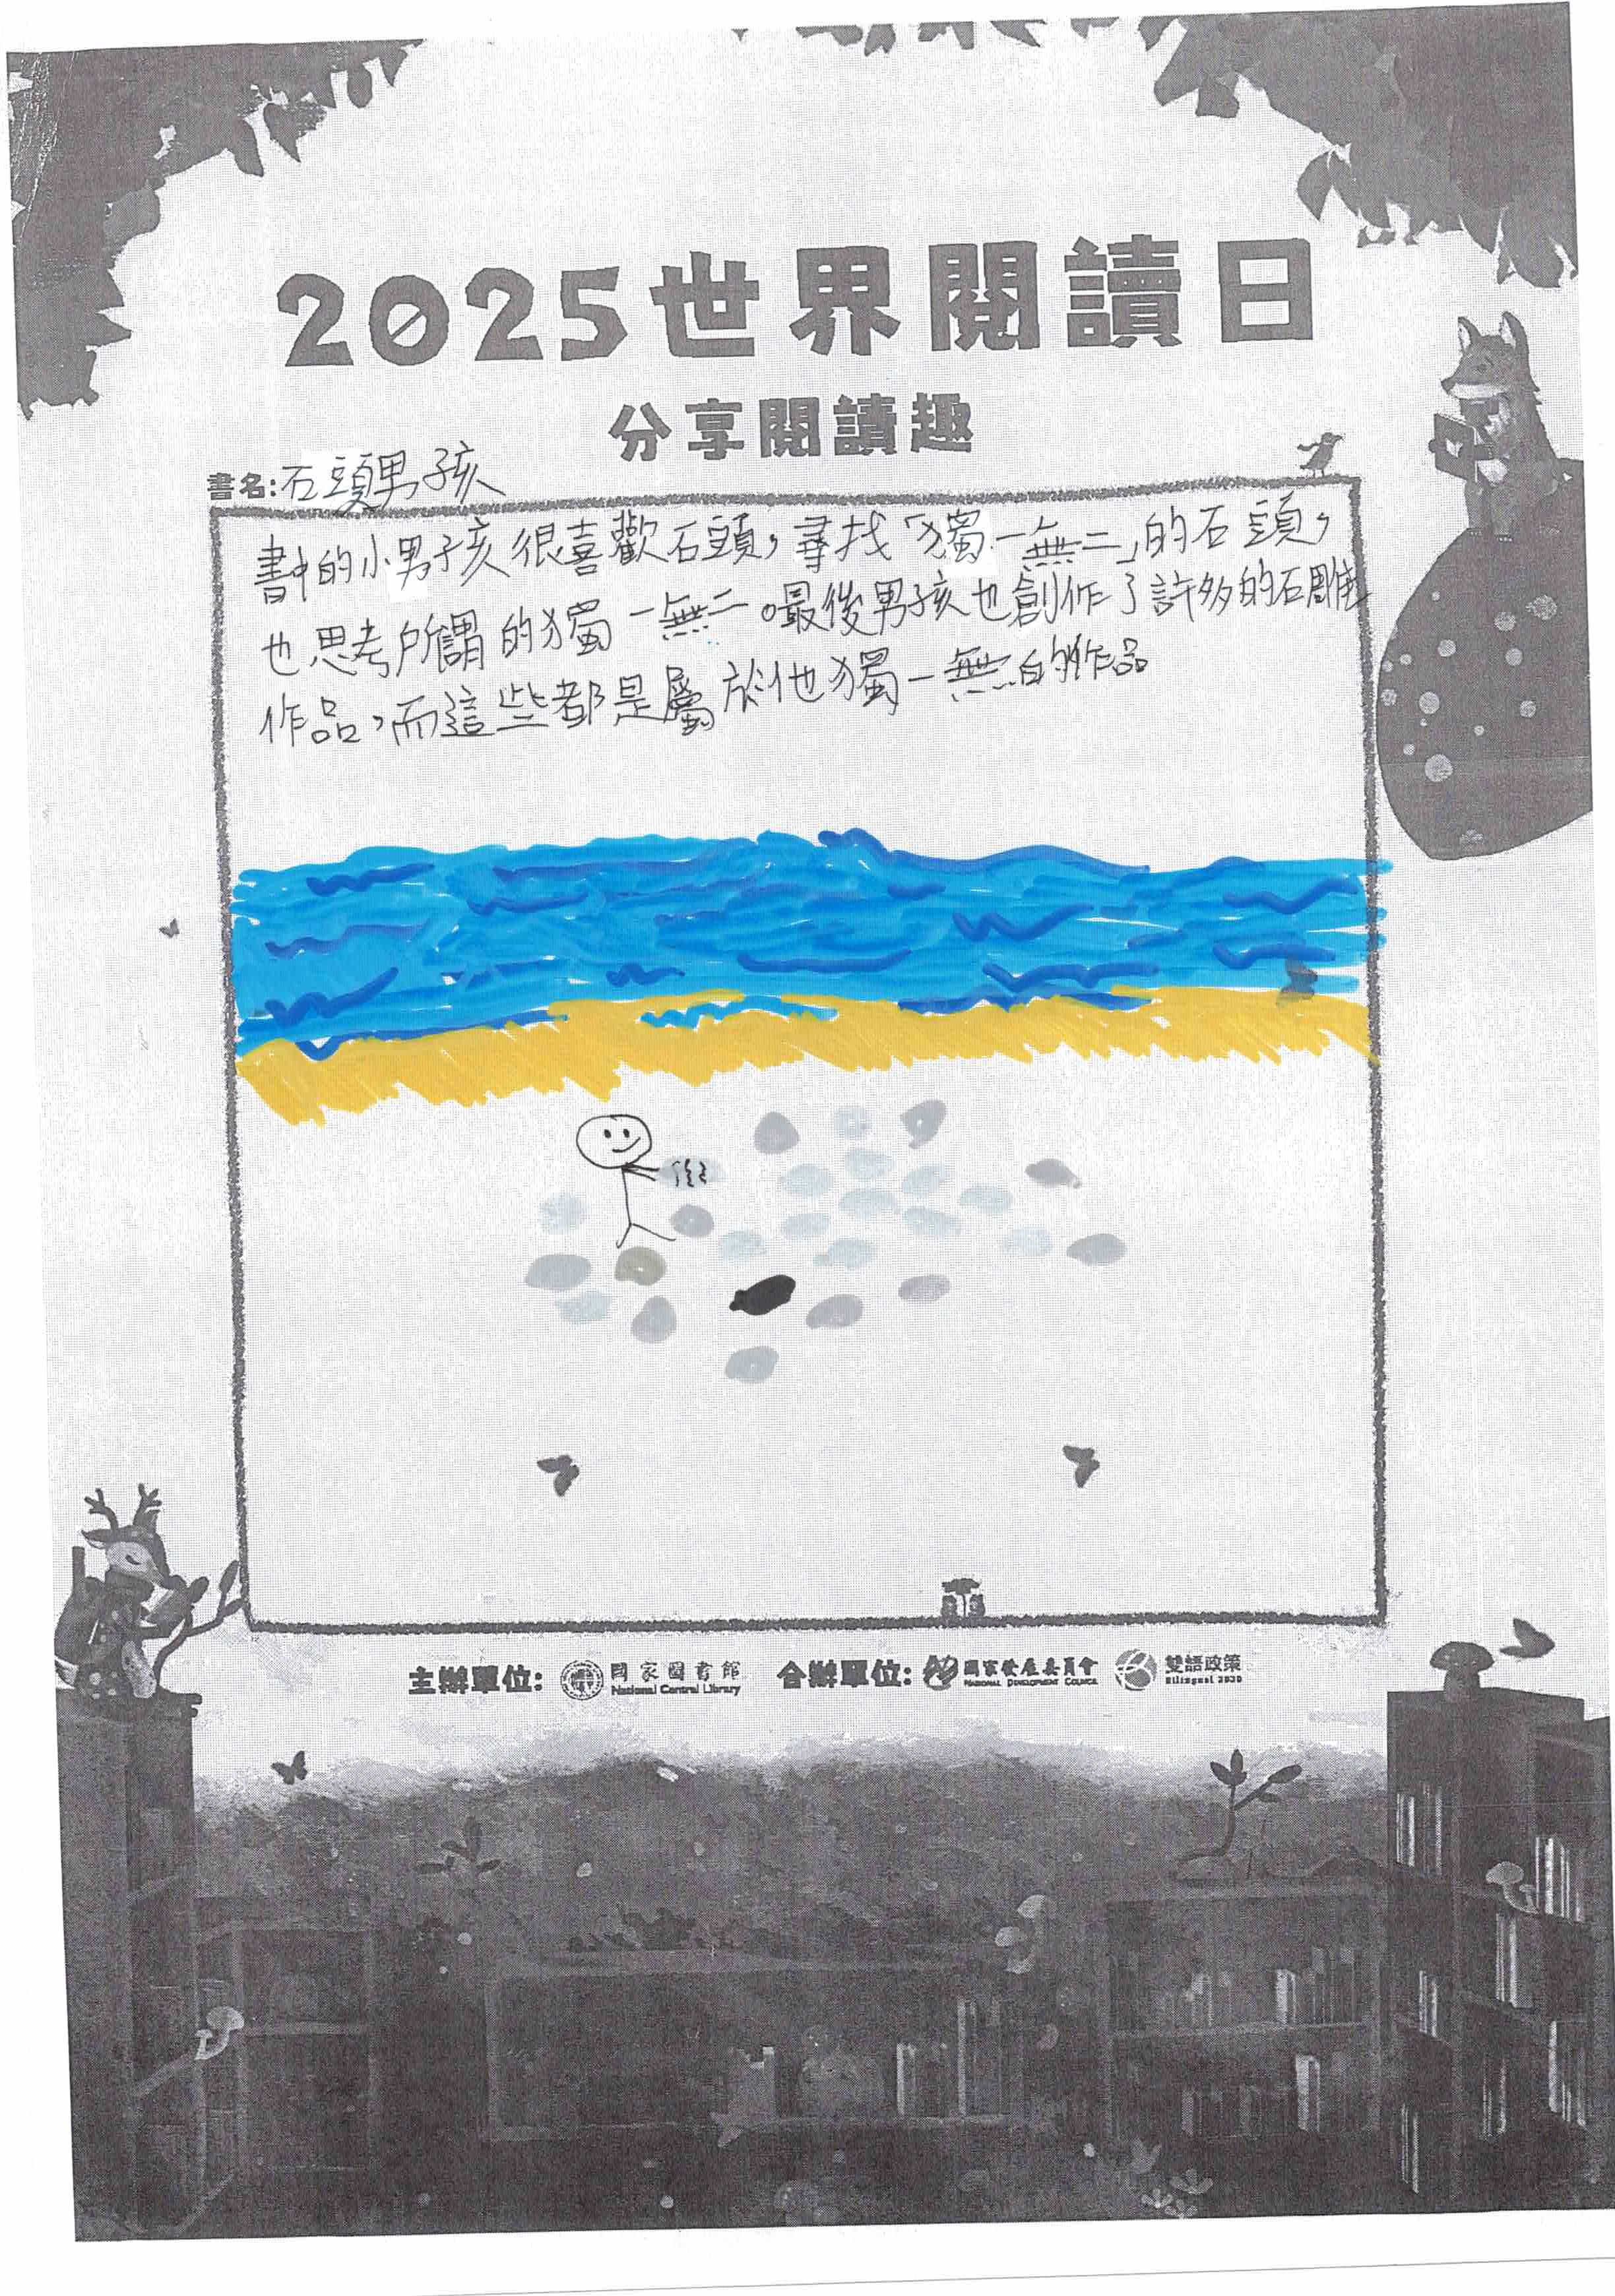 2025世界閱讀日
分享閱讀趣
書名:石頭男孩
書中的小男孩很喜歡石頭,尋找「獨一無二」的石頭,
也思考所謂的獨一無二。最後男孩也創作了許多的石雕
作品,而這些都是屬於他獨一無二的作品
主辦單位: 國家圖書館 National Central Library 合辦單位: 國家發展委員會 NATIONAL DEVELOPMENT COUNCIL 雙語政策 Bilingual 2030